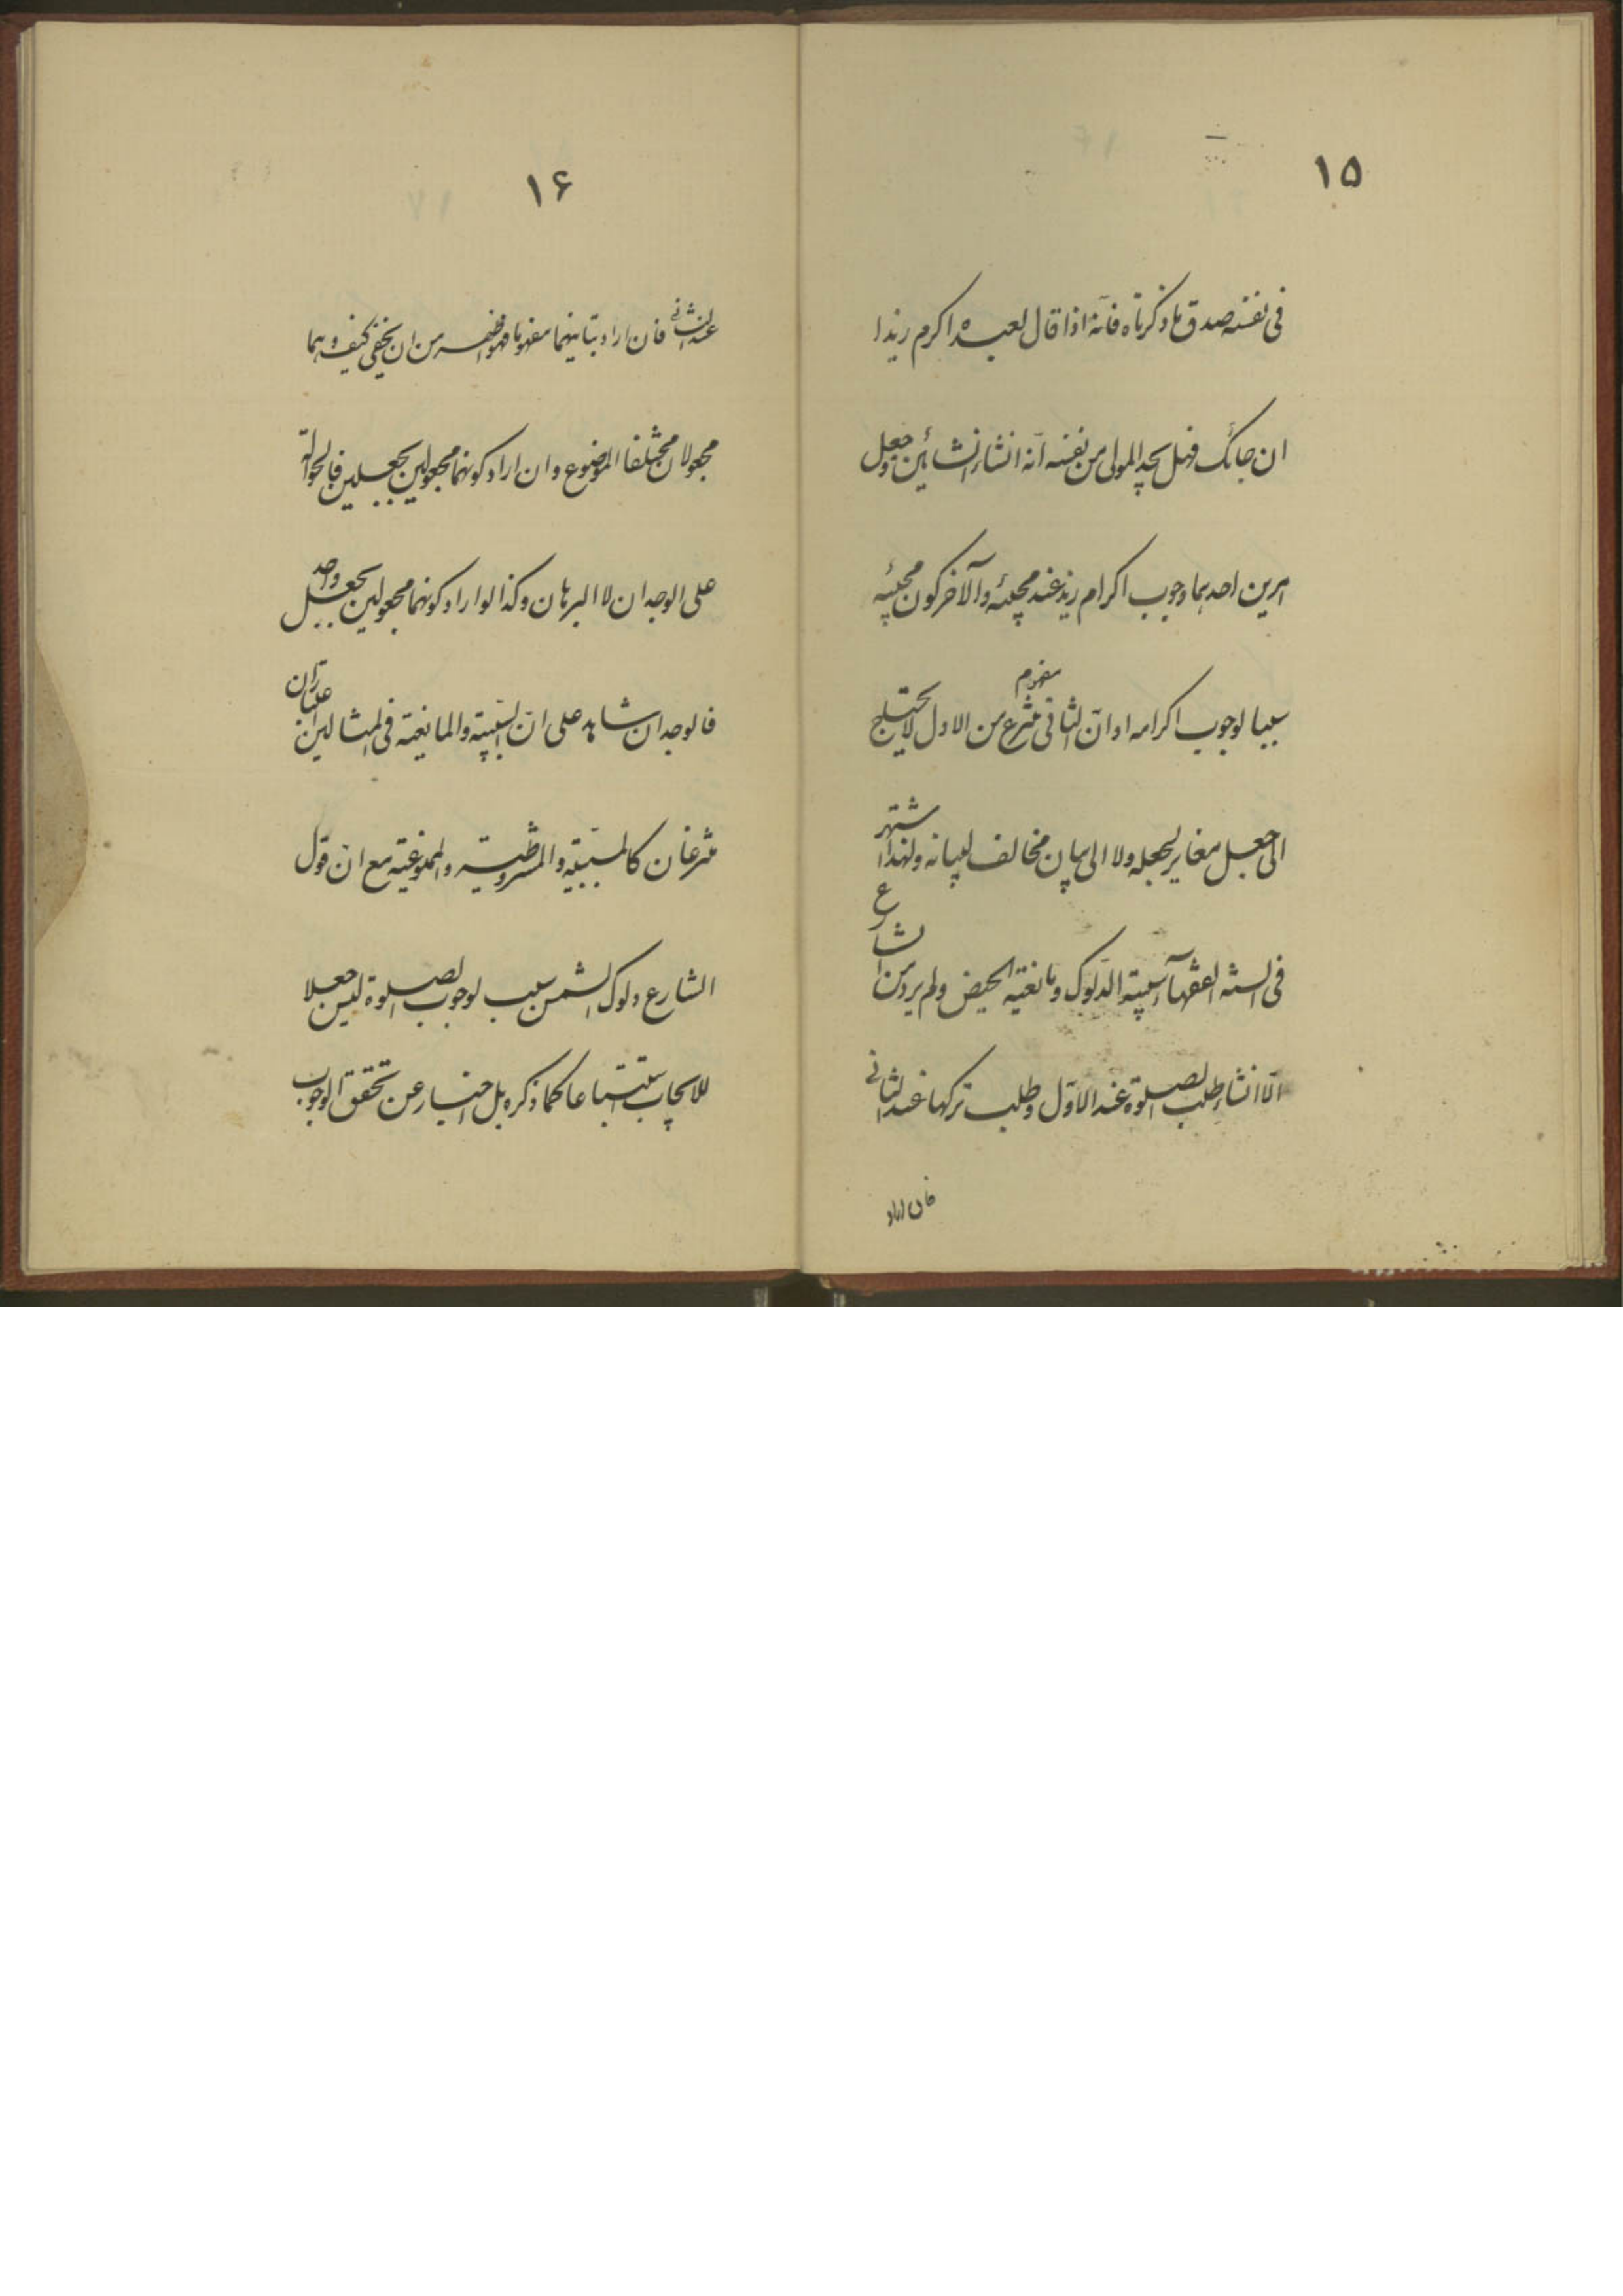 ١۵
فى نفسه صدق ما ذكرناه فانّه اذا قال لعبده اكرم زيدا
ان جائك فهل يجد المولى من نفسه انّه انشاء انشائين وجعل
امرين احدهما وجوب اكرام زيد عند مجيئه والآخر كون مجيئه
سببا لوجوب اكرامه او انّ الثانى مفهوم منتزع من الاول لا يحتاج
الى جعل مغاير لجعله ولا الى بيان مخالف لبيانه ولهذا اشتهر
فى السنة الفقهآء سببية الدّلوك ومانعية الحيض ولم يرد من الشارع
الّا انشاء طلب الصلوة عند الاوّل وطلب تركها عند الثانى
فان اراد
١۶
عند الثانى فان اراد تباينهما مفهوما فهو اظهر من ان يخفى كيف وهما
محمولان مختلفا الموضوع وان اراد كونهما مجعولين بجعلين فالحوالة
على الوجدان لا البرهان وكذا لو اراد كونهما مجعولين بجعل واحد
فالوجدان شاهد على انّ السّببية والمانعية فى المثالين اعتباران
منتزعان كالمسبّبية والمشروطية والممنوعية مع انّ قول
الشارع دلوك الشمس سبب لوجوب الصلوة ليس جعلا
للايجاب استتباعا كما ذكره بل اخبار عن تحقق الوجوب